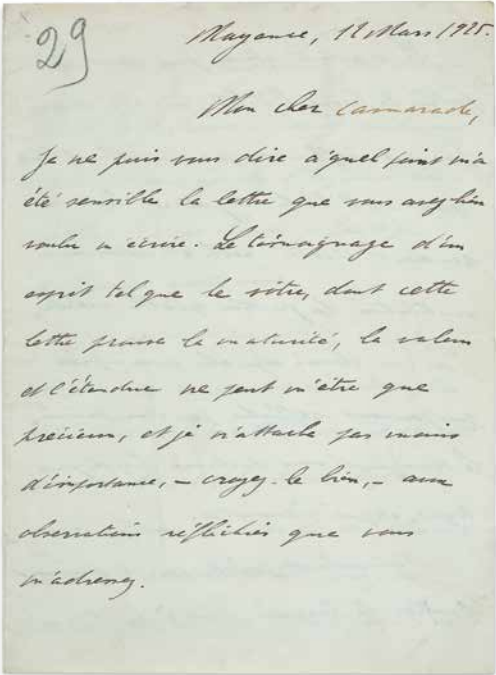 29
Mayence, 12 Mars 1925.
Mon cher Camarade,
Je ne puis vous dire à quel point m'a
été sensible la lettre que vous avez bien
voulu m'écrire. Le témoignage d'un
esprit tel que le vôtre, dont cette
lettre prouve la maturité, la valeur
et l'étendue ne peut m'être que
précieux, et je n'attache pas moins
d'importance, – croyez-le bien, – aux
observations réfléchies que vous
m'adressez.